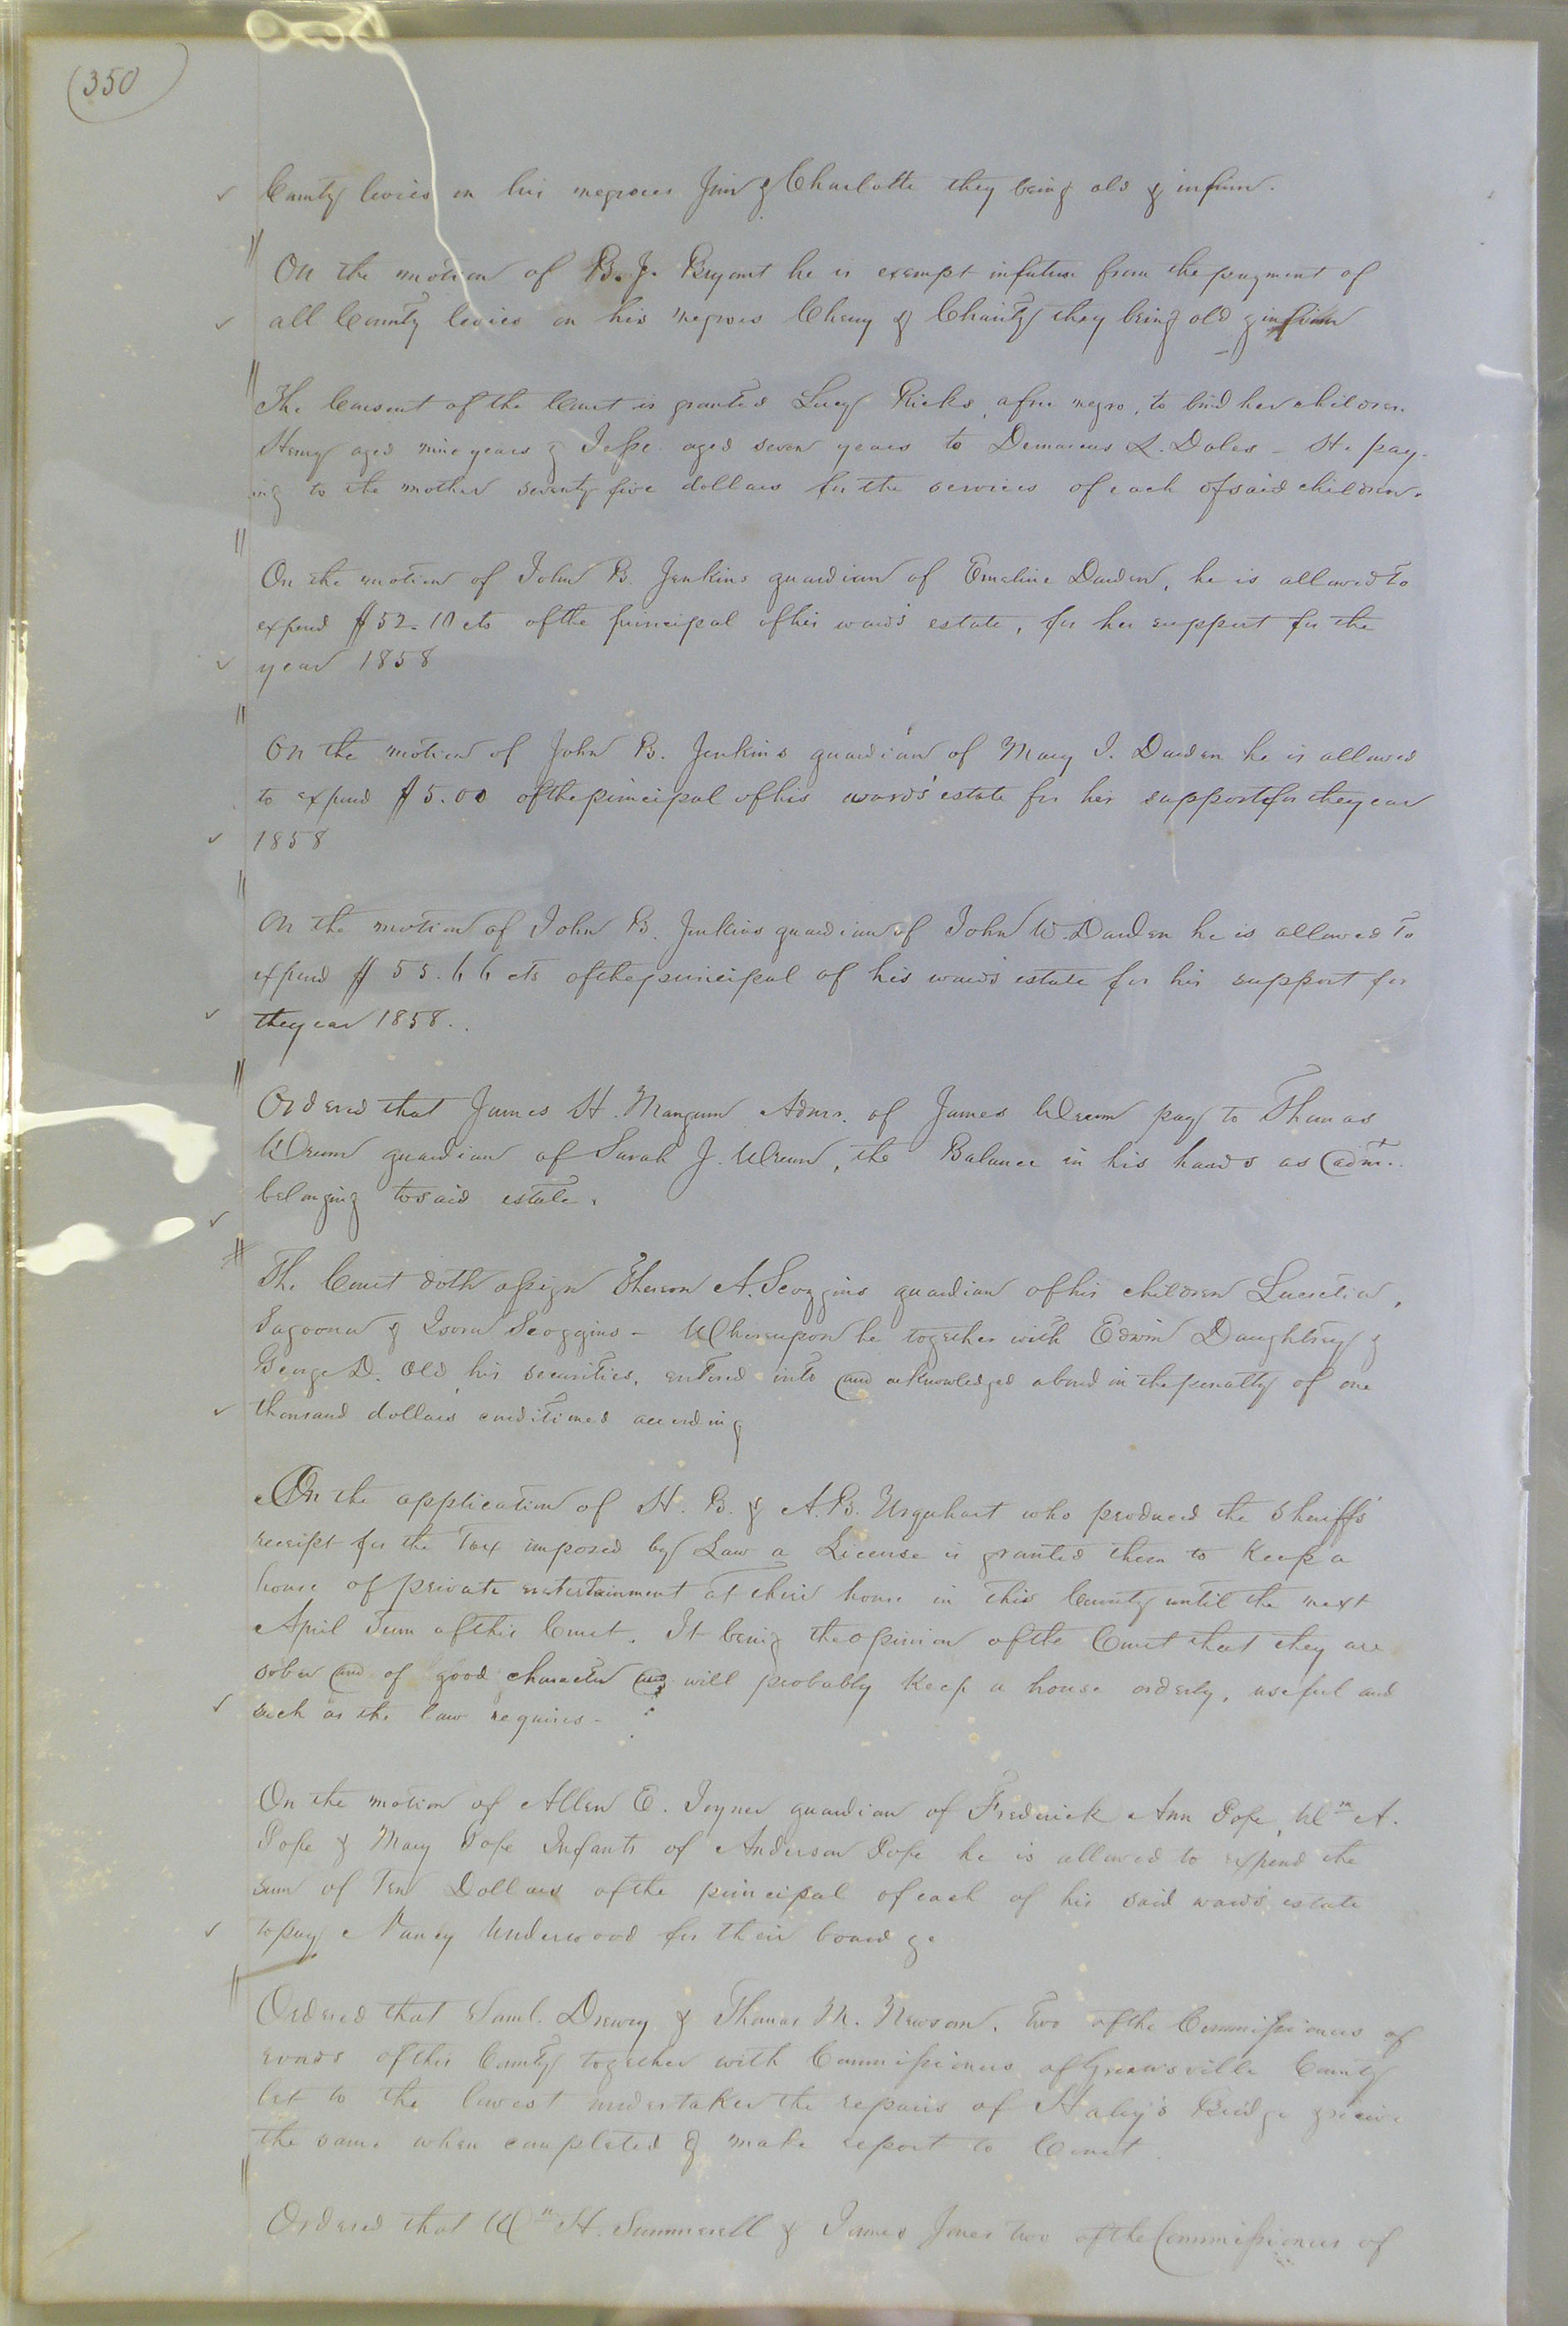 (350)
County levies on his negroes Jim & Charlotte they being old & infirm.
On the motion of B. J. Bryant he is exempt in future from the payment of
all County levies on his negroes Cherry & Charity they being old & infirm
The Consent of the Court is granted Lucy Ricks, a free negro, to bind her children
Henry aged nine years & Jesse aged seven years to Demarcus L. Doles – He pay-
ing to the mother seventy five dollars for the services of each of said children.
On the motion of John B. Jenkins guardian of Emeline Darden, he is allowed to
expend $52.10 cts of the principal of his wards estate, for her support for the
year 1858
On the motion of John B. Jenkins guardian of Mary J. Darden he is allowed
to expend $5.00 of the principal of his wards' estate for her support for the year
1858
On the motion of John B. Jenkins guardian of John W. Darden he is allowed to
expend $55.66 cts of the principal of his wards estate for his support for
the year 1858.
Ordered that James H. Mangum Admr. of James Wrenn pay to Thomas
Wrenn guardian of Sarah J. Wrenn, the Balance in his hands as admr.
belonging to said estate.
The Court doth assign Theron A. Scoggins guardian of his children Lucretia,
& Scoggins – Whereupon he together with Edwin Daughtrey &
George D. Old his securities, entered into and acknowledged a bond in the penalty of one
thousand dollars conditioned according
On the application of H. B. & A. B. Urquhart who produced the Sheriffs'
receipt for the Tax imposed by Law a License is granted them to Keep a
house of private entertainment at their house in this County until the next
April Term of this Court. It being the opinion of the Court that they are
sober and of good character and will probably Keep a house orderly, useful and
such as the law requires –
On the motion of Allen E. Joyner guardian of Frederick Ann Pope, Wm A.
Pope & Mary Pope Infants of Anderson Pope he is allowed to expend the
sum of Ten Dollars of the principal of each of his said wards estate
to pay Nancy Underwood for their board &c
Ordered that Saml. Drewry & Thomas M. Newsom, two of the Commissioners of
roads of this County together with Commissioners of Greensville County
let to the lowest undertaker the repairs of Haley's Bridge & receive
the same when completed & make report to Court
Ordered that Wm H. Summerell & James Jones two of the Commissioners of